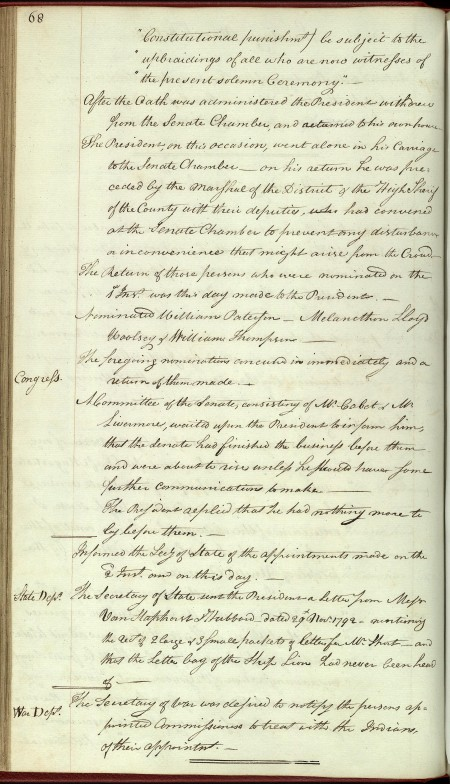 68
"Constitutional punishmt) be subject to the
"upbraidings of all who are now witnesses of
"the present solemn Ceremony." —
After the Oath was administered the President withdrew
from the Senate Chamber, and returned to his own house
The President, on this occasion, went alone in his Carriage
to the Senate Chamber — on his return he was pre-
ceded by the Marshal of the District & the High Sherif
of the County with their deputies, who had convened
at the Senate Chamber to prevent any disturbance
or inconvenience that might arise from the Croud
The Return of those persons who were nominated on the
1 Inst. was this day made to the President. —
Nominated William Paterson — Melancthon Lloyd
Woolsey & William Thompson —
The foregoing nominations concurred in immediately and a
Congress.
return of them made. —
A Committee of the Senate, consisting of Mr. Cabot & Mr.
Livermore, waited upon the President to inform him,
that the Senate had finished the business before them
and were about to rise unless he should have some
further communications to make. —
The President replied that he had nothing more to
lay before them. —
Informed the Secy of State of the appointments made on the
2 Inst. and on this day. —
State Dept. The Secretary of State sent the President a Letter from Messrs
Van Staphorst & Hubbard dated 29 Nov. 1792 —
the rect. of 2 large & 3 small packets of letters for Mr. Short — and
that the Letter bag of the Ship Lion had never been heard
of —
War Dept. The Secretary of War was desired to notify the persons ap-
pointed Commissioners to treat with the Indians,
of their appointmt. —